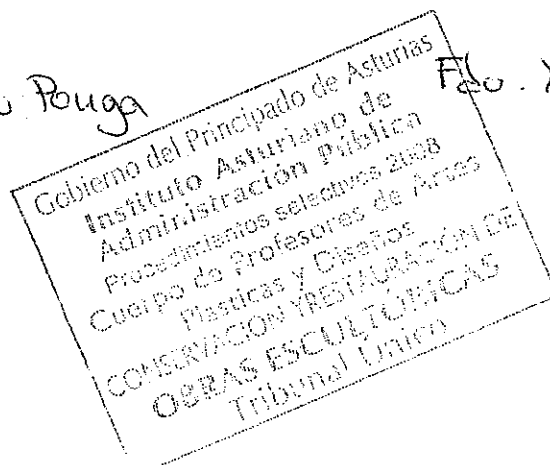 Pouga
Fdo.
Gobierno del Principado de Asturias
Instituto Asturiano de
Administración Pública
Procedimientos selectivos 2008
Cuerpo de Profesores de Artes
Plasticas y Diseños
CONSERVACION Y RESTAURACIÓN DE
OBRAS ESCULTORICAS
Tribunal Unico